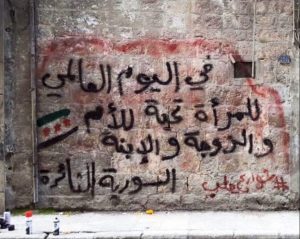 في اليوم العالمي
للمرأة تحية للأم
والزوجة والإبنة
السورية الثائرة